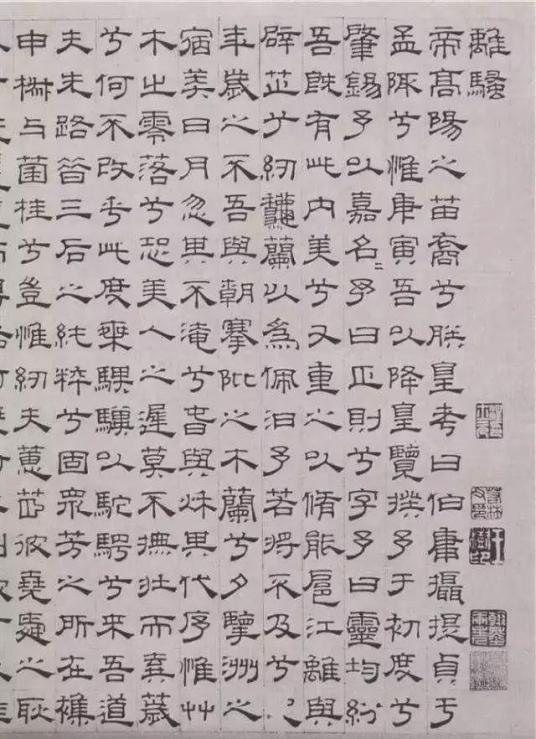 離騷
帝高陽之苗裔兮朕皇考曰伯庸攝提貞于
孟陬兮惟庚寅吾以降皇覽揆予于初度兮
肇錫予以嘉名〻予曰正則兮字予曰靈均紛
吾既有此內美兮又重之以脩能扈江離與
辟芷兮紉龝蘭以為佩汩予若將不及兮
年歲之不吾與朝搴阰之木蘭兮夕擥洲之
宿莽日月忽其不淹兮春與秌其代序惟艸
木之零落兮恐美人之遲莫不撫壯而棄薉
兮何不改乎此度乘騏驥以駝騁兮來吾道
夫先路昔三后之純粹兮固衆芳之所在襍
申椒与菌桂兮豈惟紉夫蕙茝彼堯舜之耿